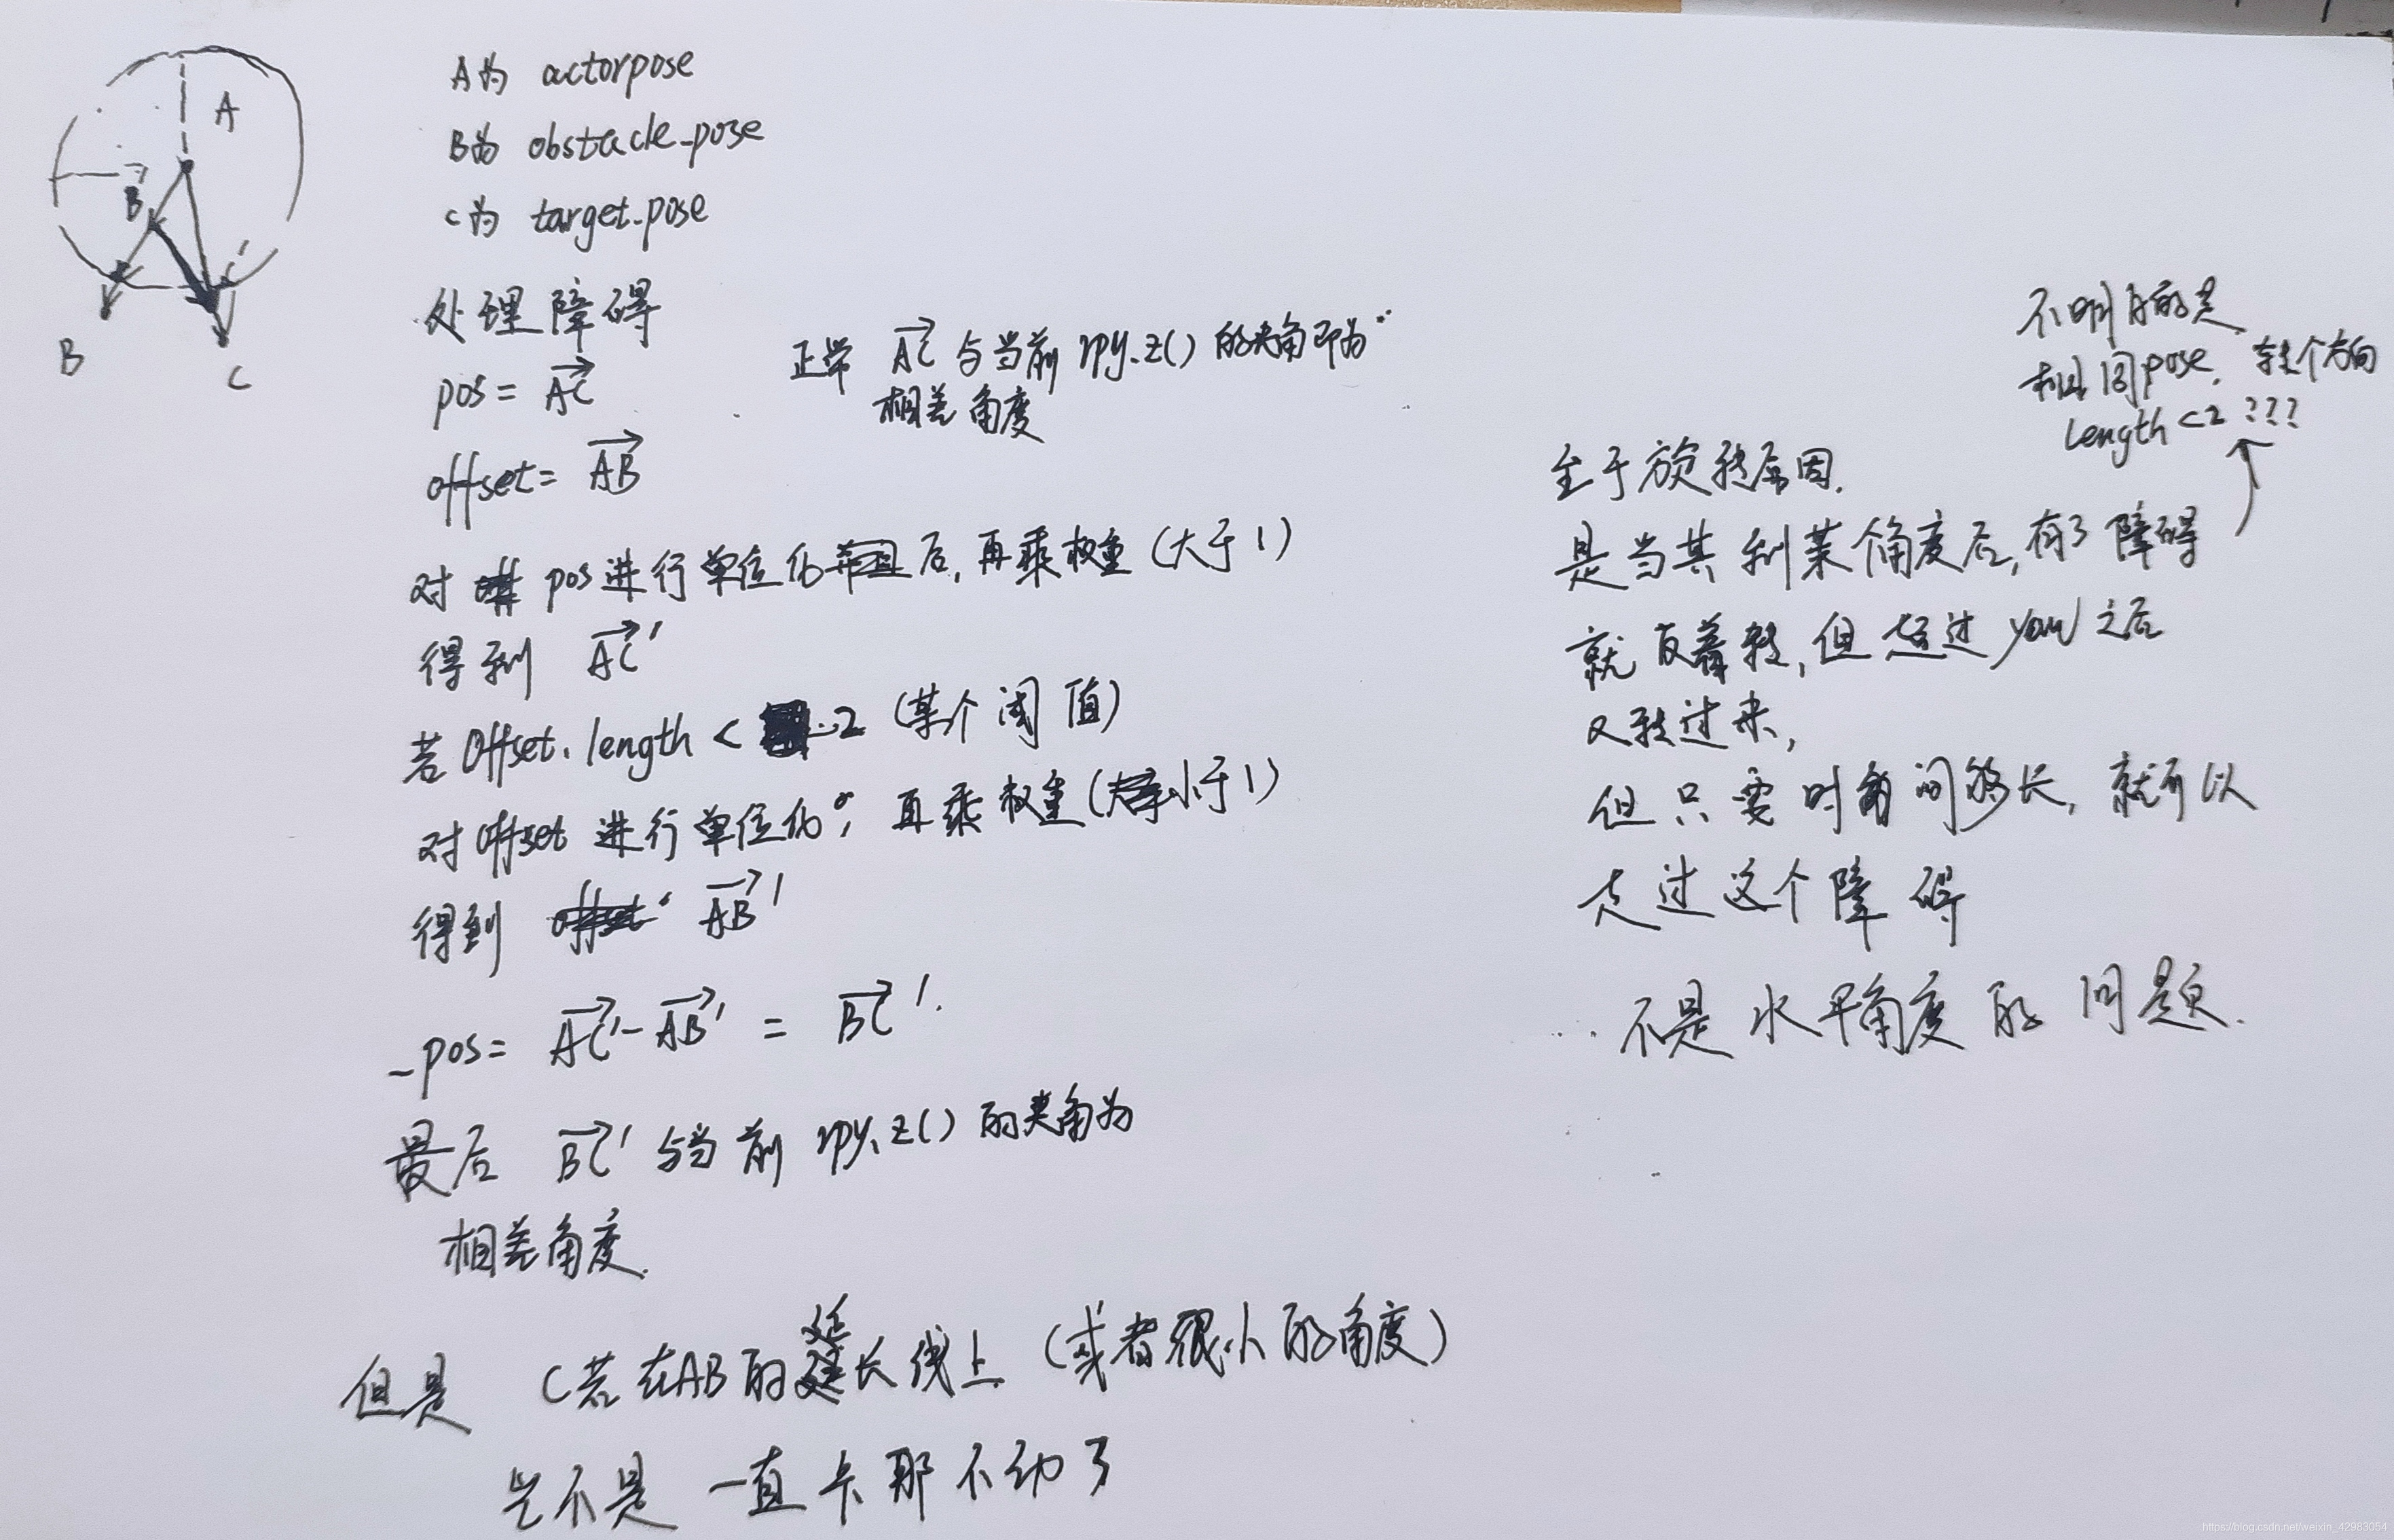 A
B
C'
B
C
A为 actorpose
B为 obstacle_pose
C为 target_pose
处理障碍
pos= AC
正常 AC 与当前 rpy.z() 的夹角即为
相差角度
offset= AB
对 pos进行单位化后,再乘权重(大于1)
得到 AC'
若 Offset.length < 2 (某个阈值)
对offset 进行单位化,再乘权重(小于1)
得到 AB'
_pos= AC'-AB' = BC'.
最后 BC' 与当前 rpy.z() 的夹角为
相差角度.
但是 C若在AB的延长线上 (或者很小的角度)
岂不是 一直卡那不动了
不明白的是
相同pose, 转个方向
length<2 ???
至于旋转原因.
是当其到某个角度后,有了障碍
就反着转,但超过yaw之后
又转过来,
但只要时间够长,就可以
走过这个障碍
不是水平角度的问题.
https://blog.csdn.net/weixin_42983054